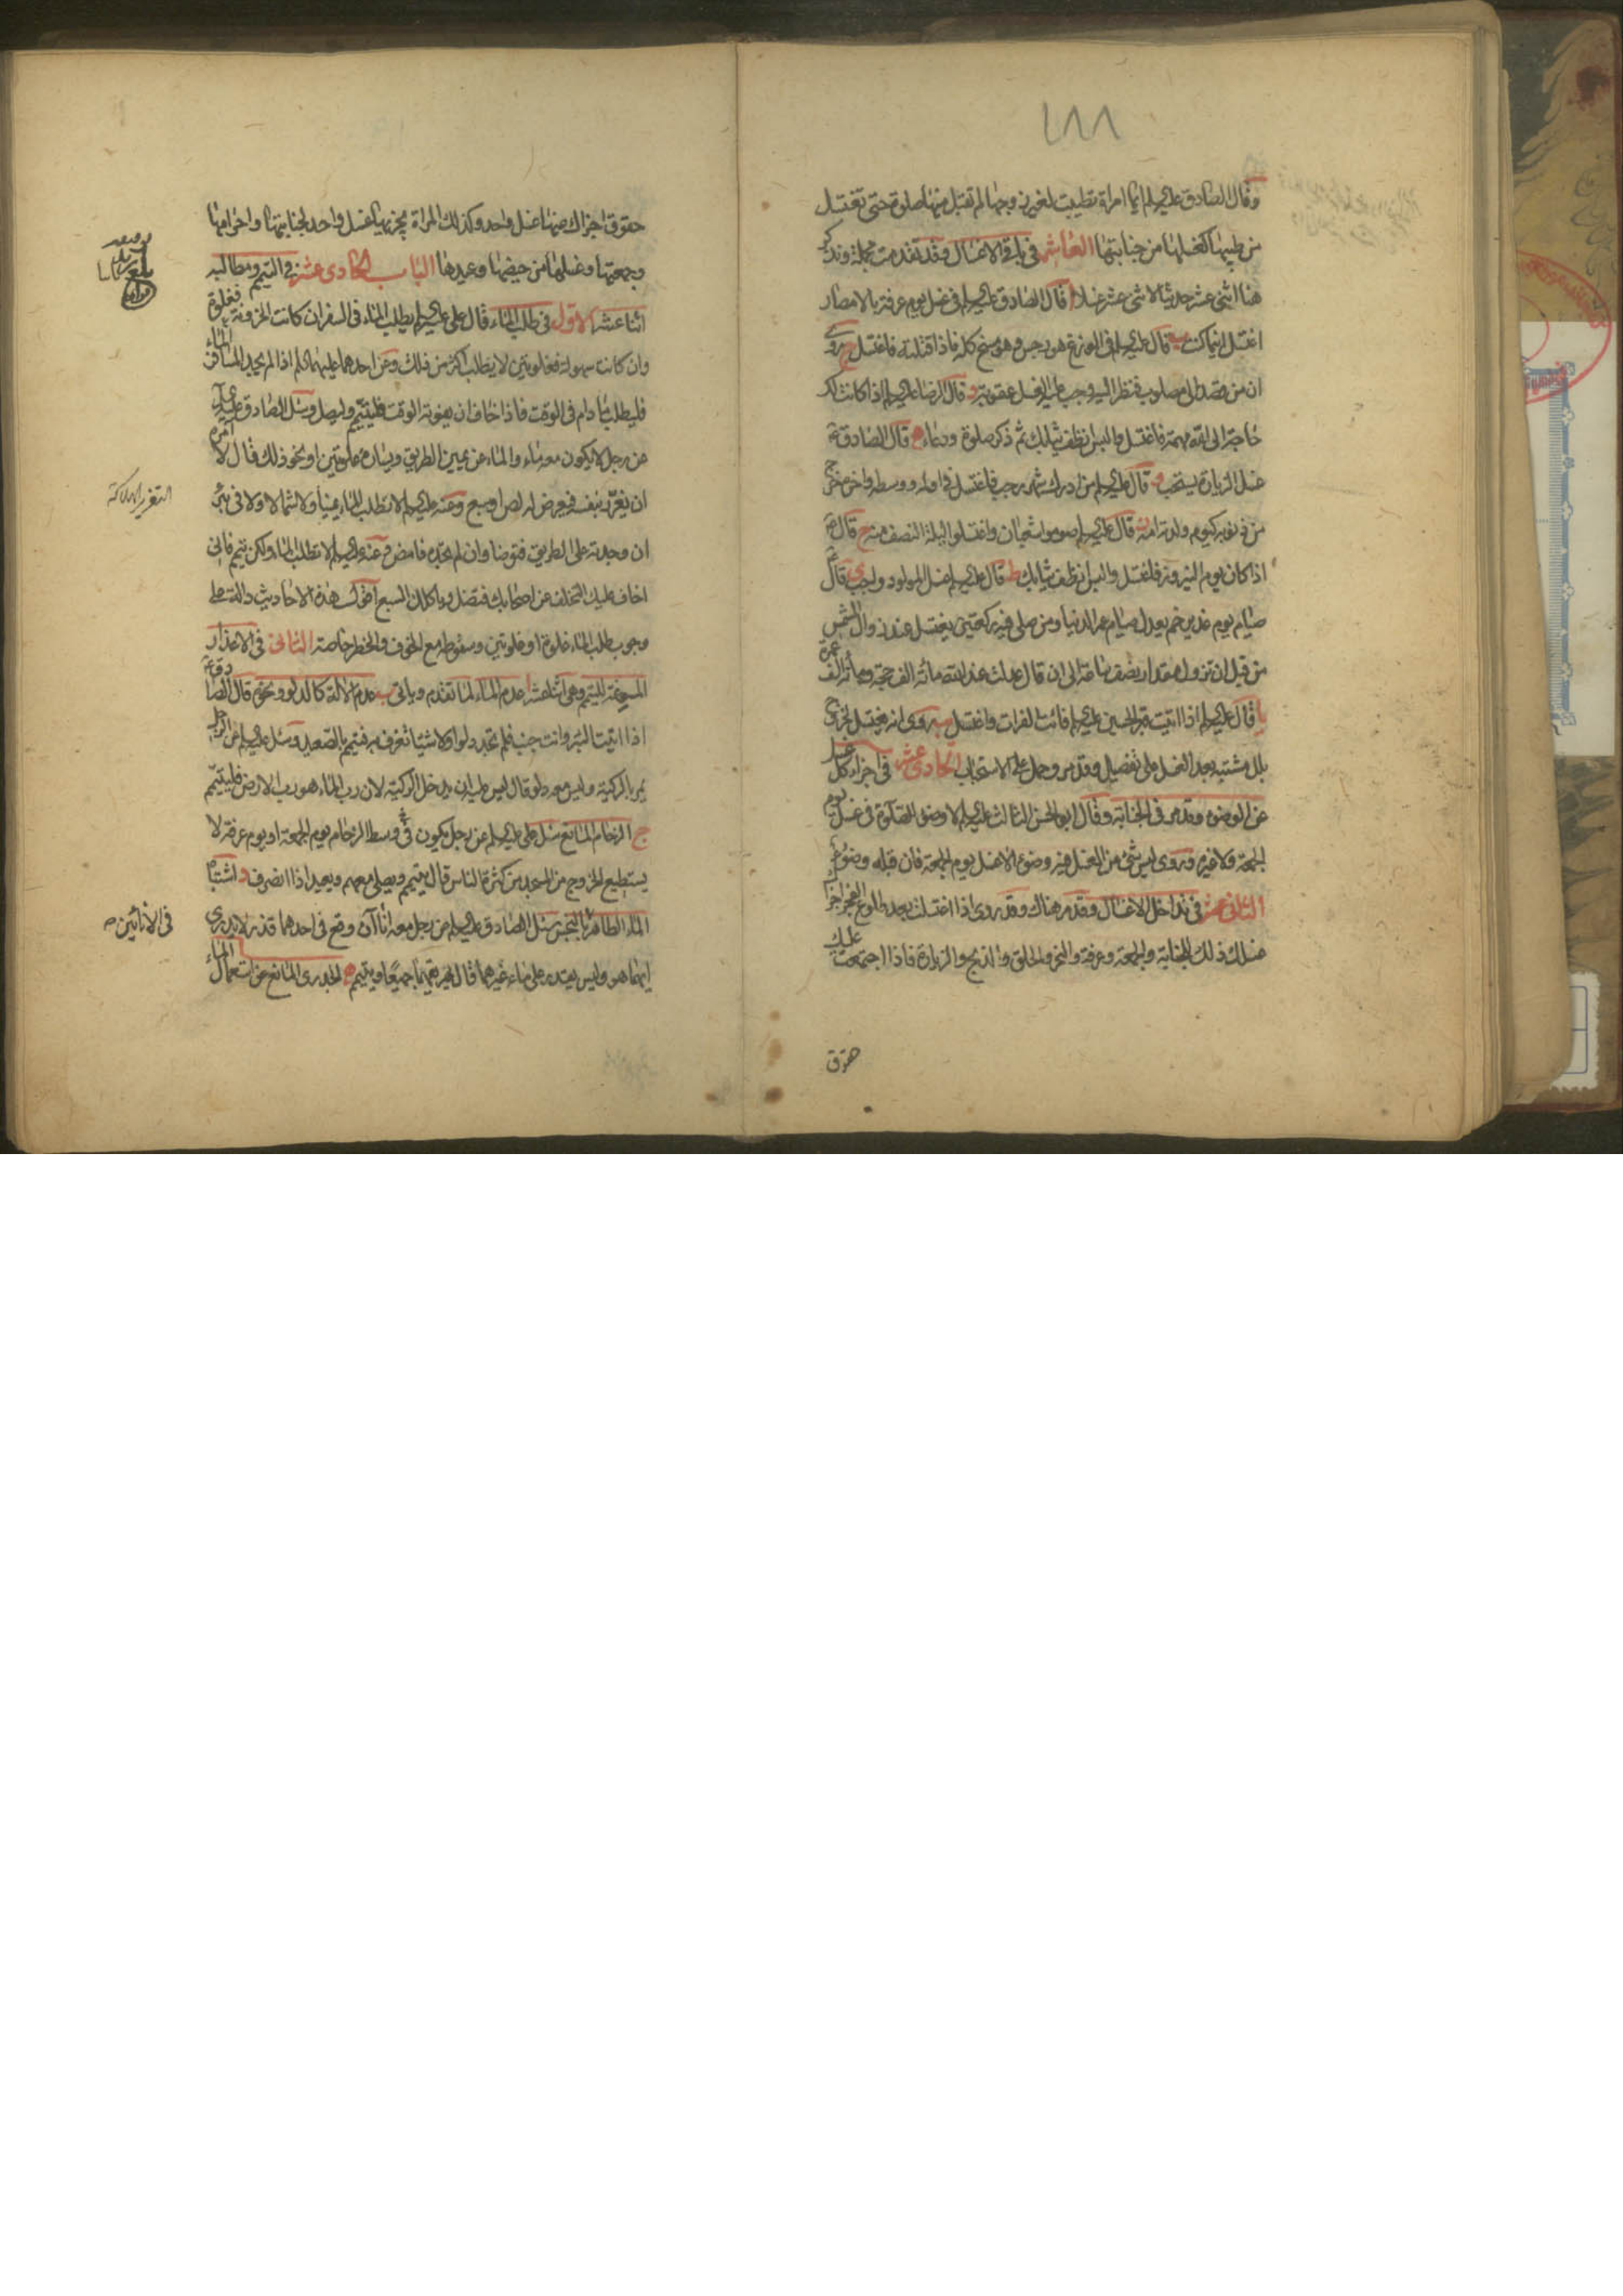 ١٨٨
وقال الصادق عليه السلم ايما امراة تطيبت لغير زوجها لم تقبل منها صلوة حتى تغتسل
من طيبها كغسلها من جنابتها العاشر في باقي الاغسال وقد تقدمت مجملة ونذكر
هنا اثنى عشر حديثا لاثنى عشر غسلا ا قال الصادق عليه السلم في غسل يوم عرفة بالامصار
اغتسل اينما كنت ب قال عليه السلم في الوزغ هو رجس وهو مسخ كله فاذا قتلته فاغتسل ج روى
ان من قصد الى مصلوب فنظر اليه وجب عليه الغسل عقوبة د قال الرضا عليه السلم اذا كانت لك
حاجة الى الله مهمة فاغتسل والبس انظف ثيابك ثم ذكر صلوة ودعاء ه قال الصادق ع
غسل الزيارة يستحب و قال عليه السلم من ادرك شهر رجب فاغتسل في اوله ووسطه واخره خرج
من ذنوبه كيوم ولدته امه ز قال عليه السلم صوموا شعبان واغتسلوا ليلة النصف منه ح قال ع
اذا كان يوم النيروز فاغتسل والبس انظف ثيابك ط قال عليه السلم غسل المولود واجب ى قال ع
صيام يوم غدير خم يعدل صيام عمر الدنيا ومن صلى فيه ركعتين يغتسل عند زوال الشمس
من قبل ان تزول مقدار نصف ساعة الى ان قال عدلت عند الله مائة الف حجة ومائة الف عمرة
يا قال عليه السلم اذا اتيت قبر الحسين عليه السلم فائت الفرات واغتسل يب روى انه يغتسل لخروج
بلل مشتبه بعد الغسل على تفصيل وقد مر وحمل على الاستحباب الحادي عشر في اجزاء كل غسل
عن الوضوء وقد مر في الجنابة وقال ابو الحسن الثالث عليه السلم لا وضوء للصلوة في غسل يوم
الجمعة ولا غيره وروى ليس شئ من الغسل فيه وضوء الا غسل يوم الجمعة فان قبله وضوء
الثاني عشر في تداخل الاغسال وقد مر هناك وقد روى اذا اغتسلت بعد طلوع الفجر اجزاء
غسلك ذلك للجنابة والجمعة وعرفة والنحر والحلق والذبح والزيارة فاذا اجتمعت عليك
حقوق
حقوق اجزاك عنها غسل واحد وكذلك المراة يجزيها غسل واحد لجنابتها واحرامها
وجمعتها وغسلها من حيضها وعيدها الباب الحادي عشر في التيمم ومطالبه
اثنا عشر الاول في طلب الماء قال علي عليه السلم يطلب الماء في السفر ان كانت الحزونة فغلوة
وان كانت سهولة فغلوتين لا يطلب اكثر من ذلك وعن احدهما عليهما السلم اذا لم يجد المسافر الماء
فليطلب ما دام في الوقت فاذا خاف ان يفوته الوقت فليتيمم وليصل وسئل الصادق عليه السلم
عن رجل لا يكون معه ماء والماء عن يمين الطريق ويساره غلوتين او نحو ذلك قال لا امره
ان يغرر بنفسه فيعرض له لص او سبع وعنه عليه السلم لا تطلب الماء يمينا ولا شمالا ولا في بئر
ان وجدته على الطريق فتوضا وان لم تجده فامض وعنه عليه السلم لا تطلب الماء ولكن تيمم فاني
اخاف عليك التخلف عن اصحابك فتضل وياكلك السبع اقول هذه الاحاديث دالة على
وجوب طلب الماء غلوة او غلوتين وسقوطه مع الخوف والخطر خاصة الثاني في الاعذار
المسوغة للتيمم وهي اثنا عشر ا عدم الماء لما تقدم وياتي ب عدم الالة كالدلو ونحوه قال الصادق ع
اذا اتيت البئر وانت جنب فلم تجد دلوا ولا شيئا تغرف به فتيمم بالصعيد وسئل عليه السلم عن الرجل
يمر بالركية وليس معه دلو قال ليس عليه ان يدخل الركية لان رب الماء هو رب الارض فليتيمم
ج الزحام المانع سئل علي عليه السلم عن رجل يكون في وسط الزحام يوم الجمعة او يوم عرفة لا
يستطيع الخروج من المسجد من كثرة الناس قال يتيمم ويصلي معهم ويعيد اذا انصرف د اشتباه
الماء الطاهر بالنجس سئل الصادق عليه السلم عن رجل معه اناآن وقع في احدهما قذر لا يدرى
ايهما هو وليس يقدر على ماء غيرهما قال يهريقهما جميعا ويتيمم ه الجدرى المانع عن استعمال الماء
التغرير الهلاكة
في الانائين